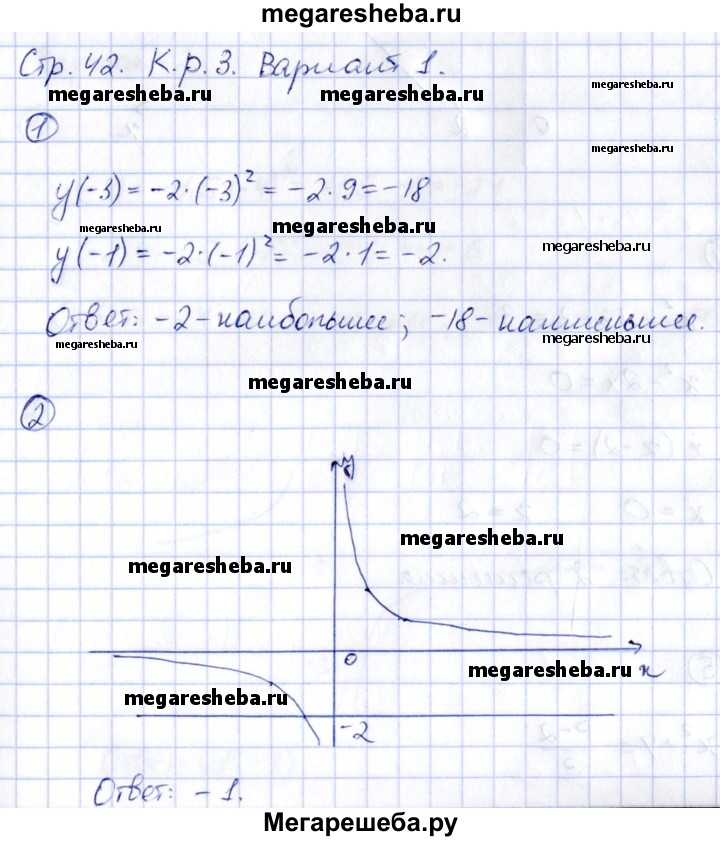 megaresheba.ru
Стр. 42. К.р. 3. Вариант 1.
megaresheba.ru megaresheba.ru megaresheba.ru
1
megaresheba.ru
y(-3) = -2·(-3)² = -2·9 = -18
megaresheba.ru megaresheba.ru megaresheba.ru
y(-1) = -2·(-1)² = -2·1 = -2.
Ответ: -2 - наибольшее; -18 - наименьшее.
megaresheba.ru megaresheba.ru
megaresheba.ru
2
y
megaresheba.ru
megaresheba.ru
0 x
megaresheba.ru
megaresheba.ru
-2
Ответ: -1.
Мегарешеба.ру